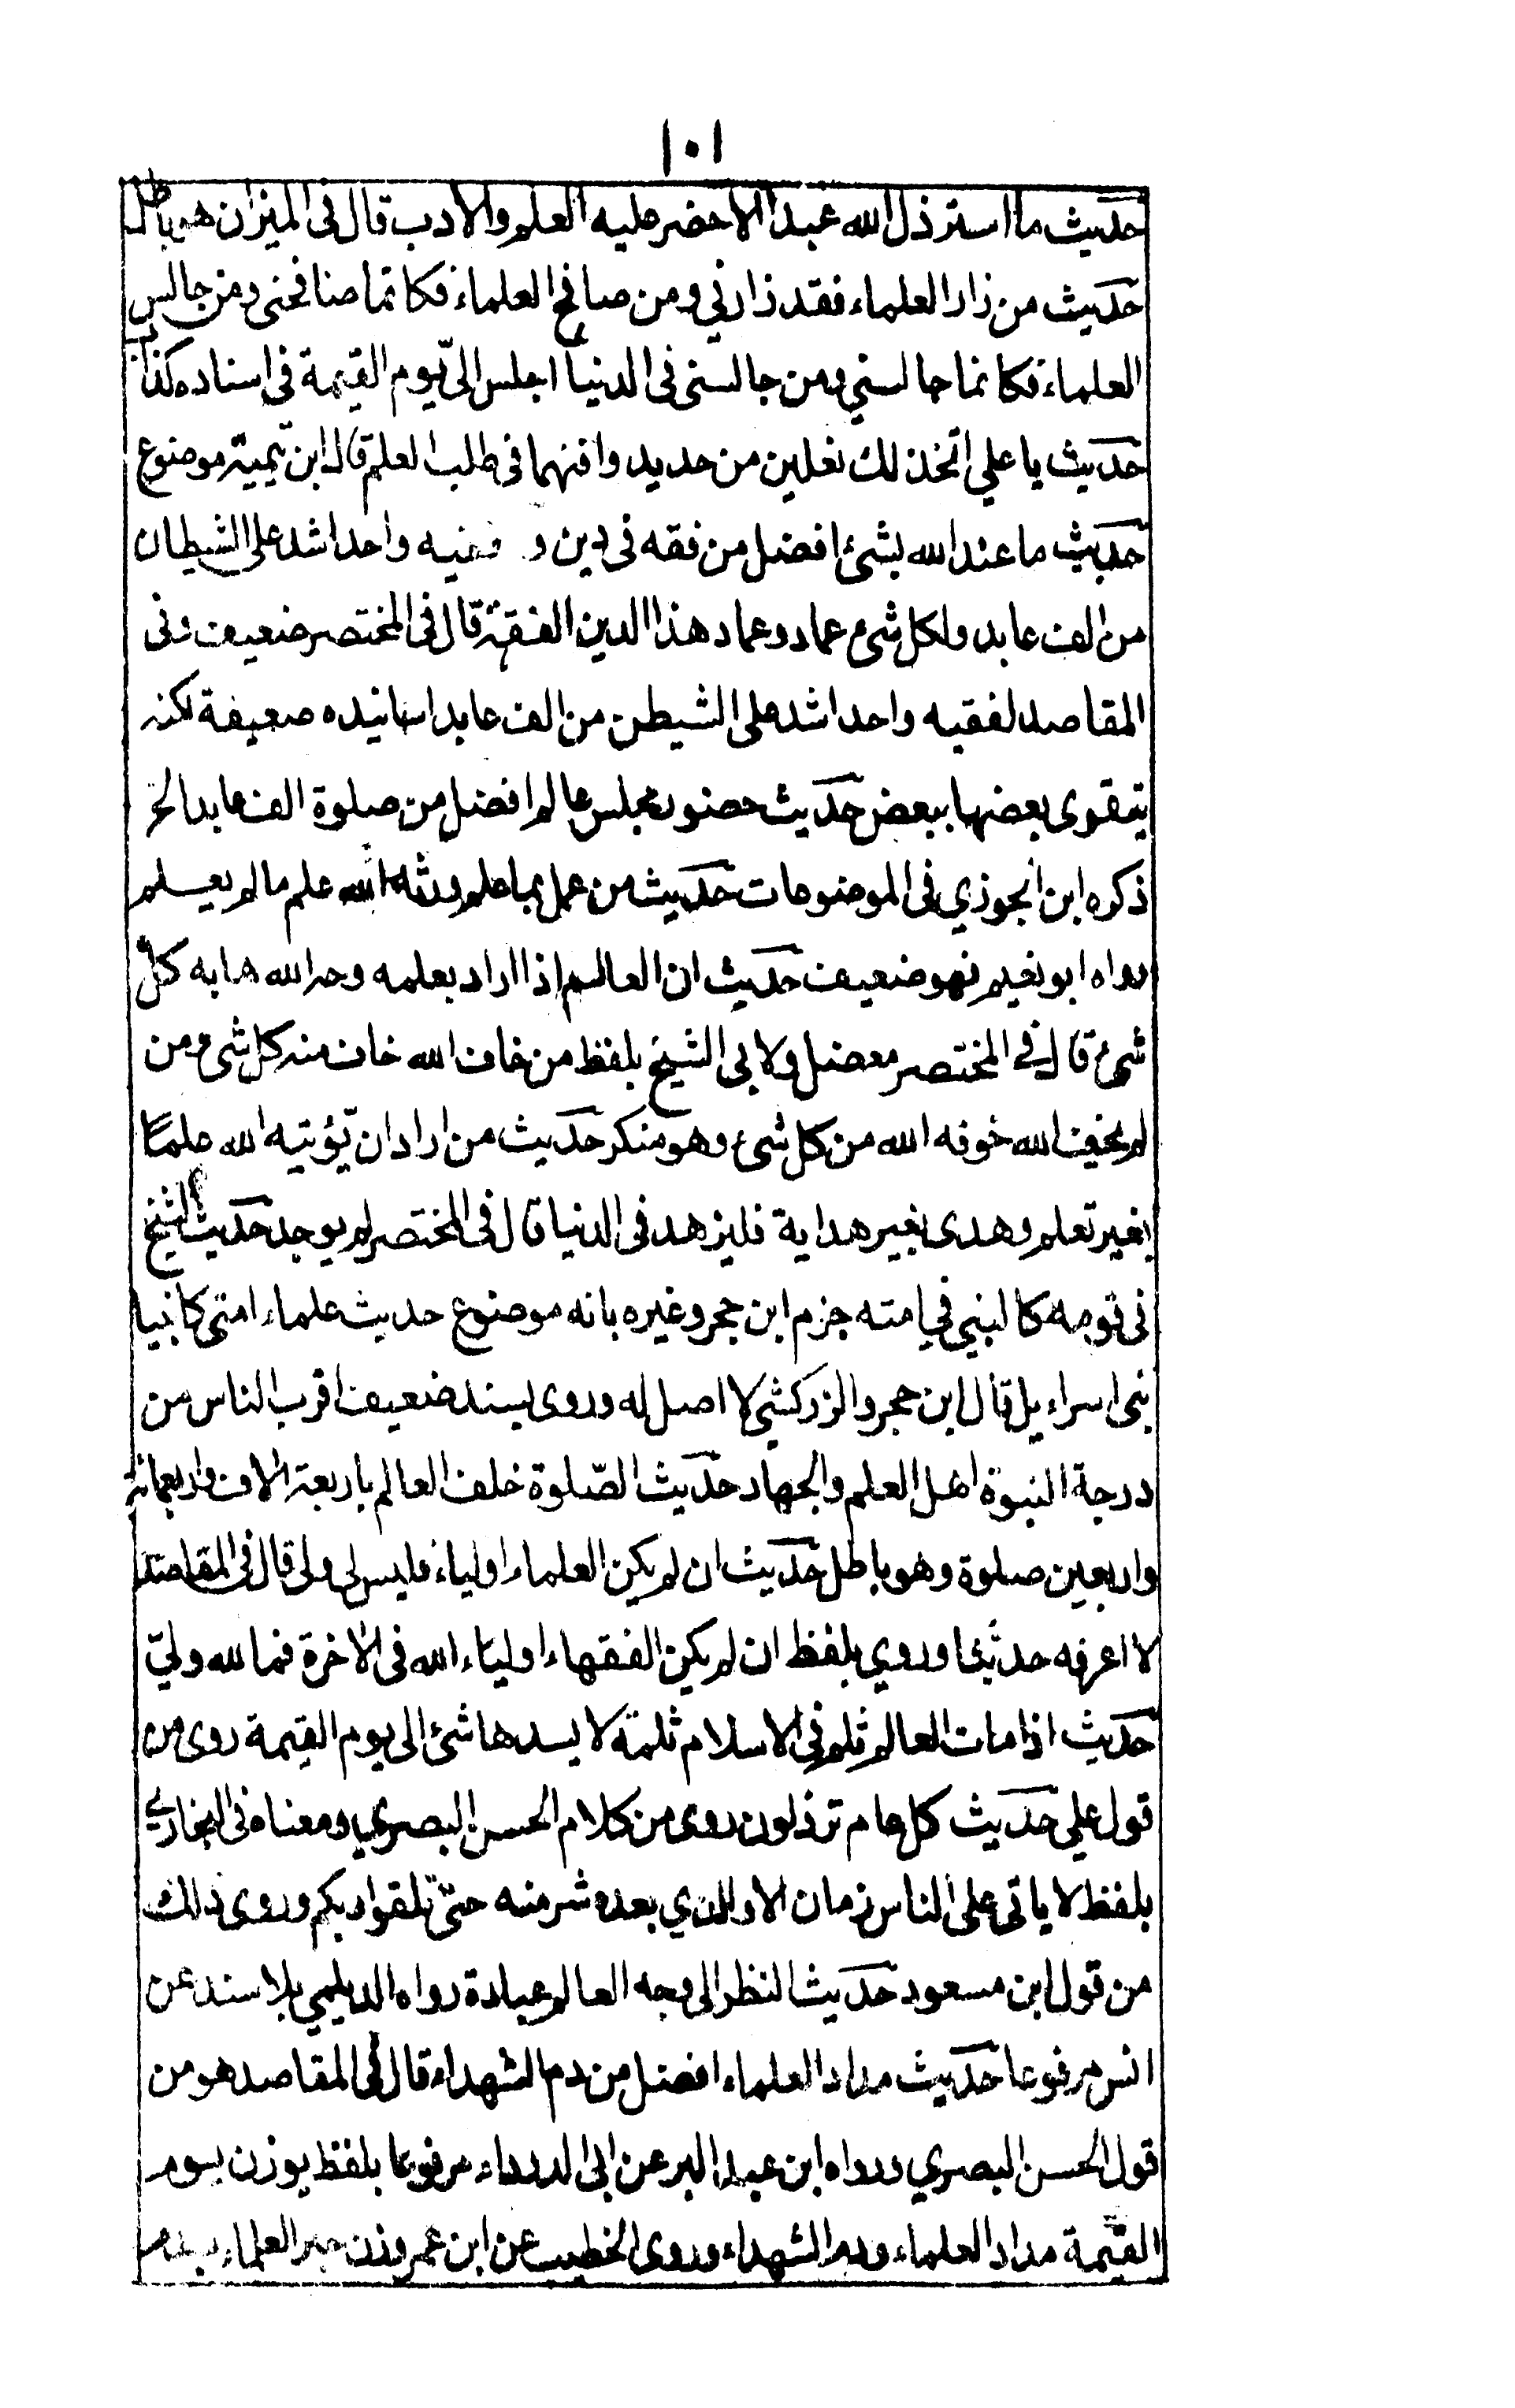 ١٠١
حديث ما استرذل الله عبدا الا حضر عليه العلم والادب قال فى الميزان هو باطل
حديث من زار العلماء فقد زارني ومن صافح العلماء فكانما صافحنى ومن جالس
العلماء فكانما جالسني ومن جالسنى فى الدنيا اجلس الىّ يوم القيمة فى اسناده كذاب
حديث يا علي اتخذ لك نعلين من حديد وافنهما فى طلب العلم قال ابن تيمية موضوع
حديث ما عند الله بشئ افضل من فقه فى دين و فقيه واحد اشد على الشيطان
من الف عابد ولكل شئ عماد وعماد هذا الدين الفقه قال فى المختصر ضعيف وفى
المقاصد لفقيه واحد اشد على الشيطن من الف عابد اسانيده ضعيفة لكنه
يتقوى بعضها ببعض حديث حضور مجلس عالم افضل من صلوة الف عابد الخ
ذكره ابن الجوزي فى الموضوعات حديث من عمل بما علم ورثه الله علم ما لم يعلم
رواه ابو نعيم فهو ضعيف حديث ان العالم اذا اراد بعلمه وجه الله هابه كل
شئ قال في المختصر معضل ولابى الشيخ بلفظ من خاف الله خاف منه كل شئ ومن
لم يخف الله خوفه الله من كل شئ وهو منكر حديث من اراد ان يؤتيه الله علما
بغير تعلم وهدى بغير هداية فليزهد فى الدنيا قال فى المختصر لم يوجد حديث الشيخ
فى قومه كالنبي في امته جزم ابن حجر وغيره بانه موضوع حديث علماء امتى كانبيا
بنى اسراءيل قال ابن حجر والزركشي لا اصل له وروى بسند ضعيف اقرب الناس من
درجة النبوة اهل العلم والجهاد حديث الصّلوة خلف العالم باربعة الاف واربعمائة
واربعين صلوة وهو باطل حديث ان لم يكن العلماء اولياء فليس لى ولى قال فى المقاصد
لا اعرفه حديثا وروي بلفظ ان لم يكن الفقهاء اولياء الله فى الاخرة فما لله وليّ
حديث اذا مات العالم ثلم في الاسلام ثلمة لا يسدها شئ الى يوم القيمة روى من
قول علي حديث كل عام ترذلون روى من كلام الحسن البصري ومعناه فى البخاري
بلفظ لا ياتى على الناس زمان الا والذي بعده شر منه حتّى تلقوا ربكم وروى ذلك
من قول ابن مسعود حديث النظر الى وجه العالم عبادة رواه الديلمي بلا سند عن
انس مرفوعا حديث مداد العلماء افضل من دم الشهداء قال فى المقاصد هو من
قول الحسن البصري ورواه ابن عبد البر عن ابى الدرداء مرفوعا بلفظ يوزن يوم
القيمة مداد العلماء ودم الشهداء وروى الخطيب عن ابن عمر وزن حبر العلماء بدم